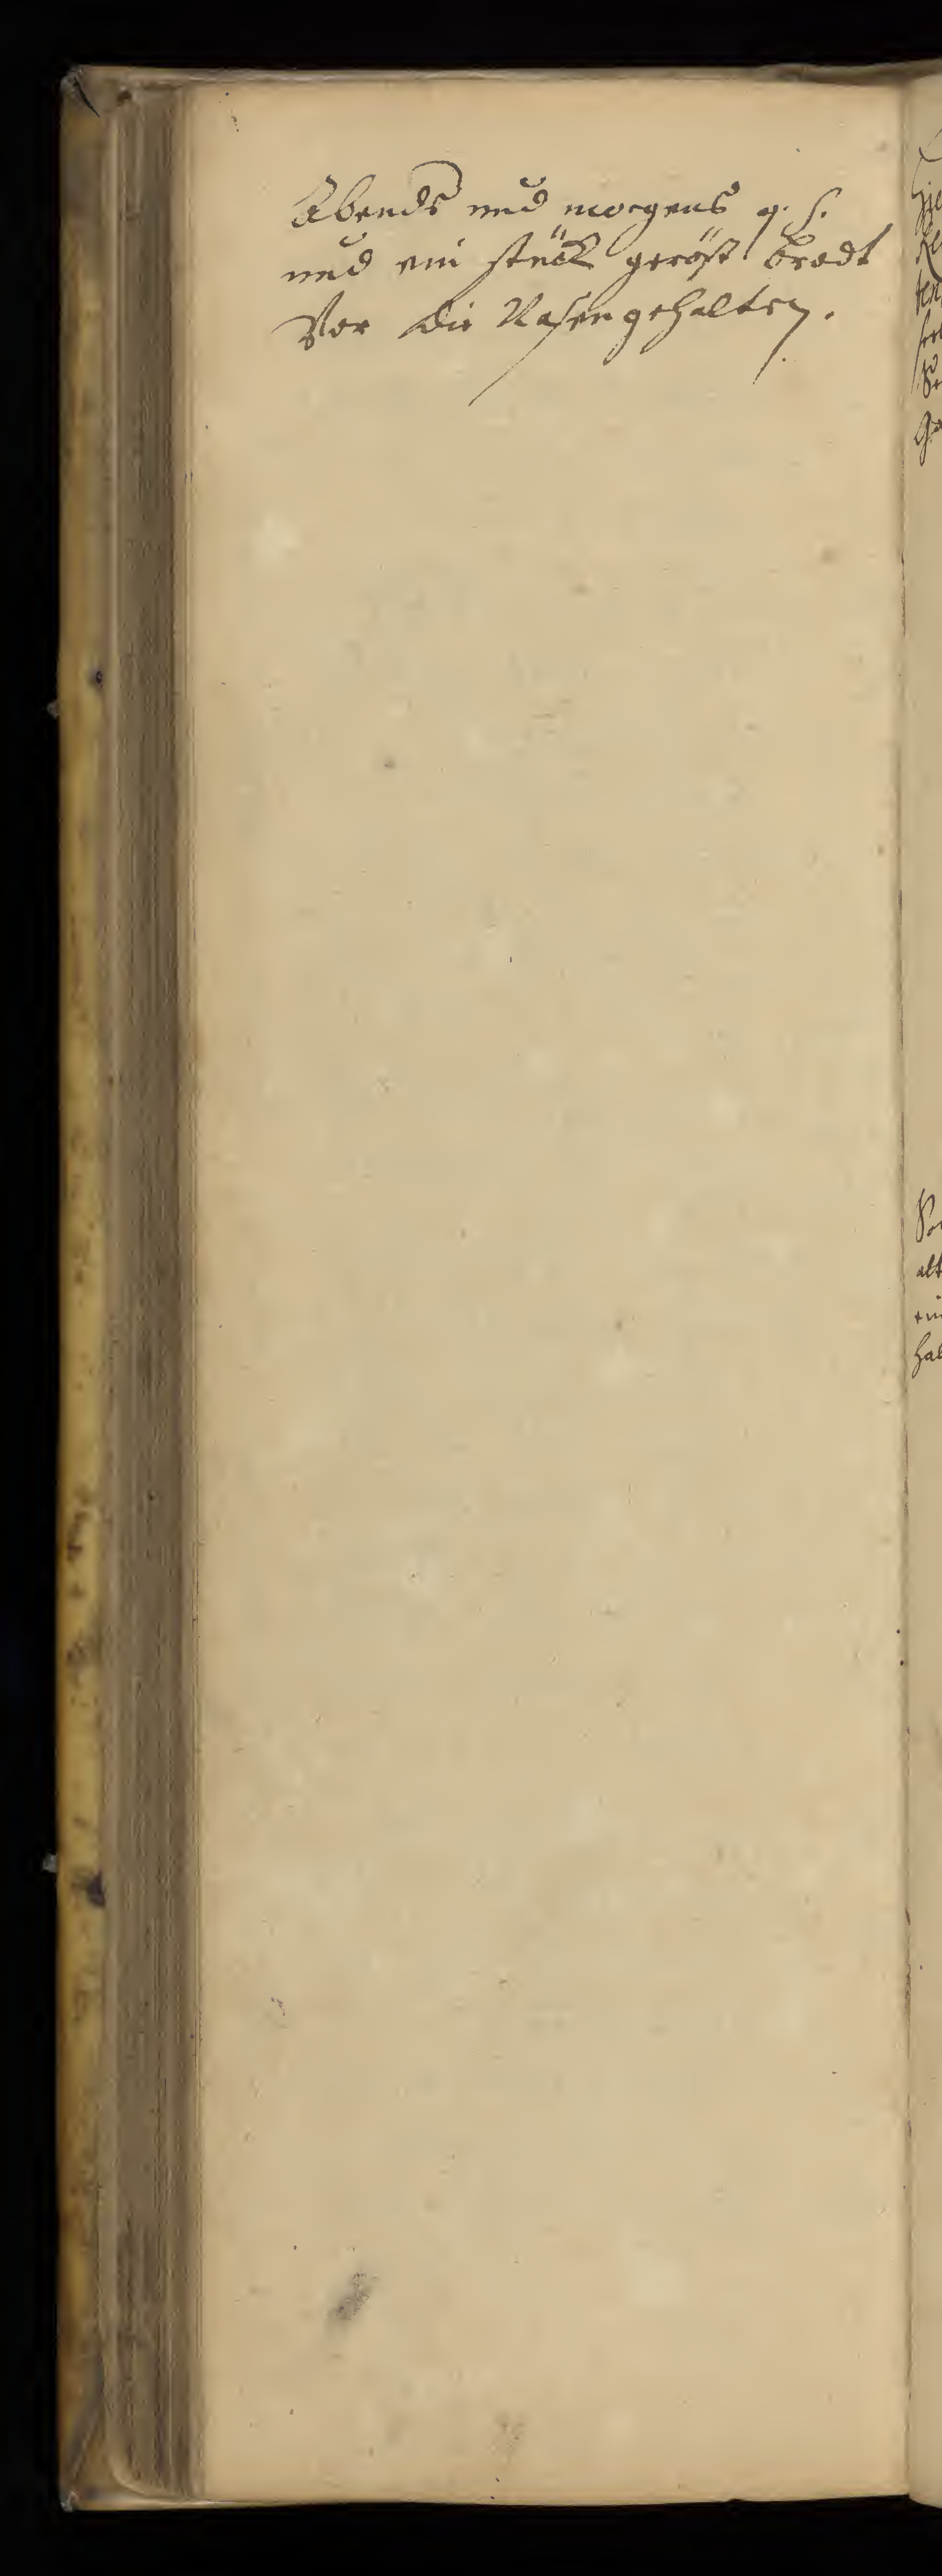 Abends und morgens q. s.
und ein stück geröst brodt
Vor die Nasen gehalten.